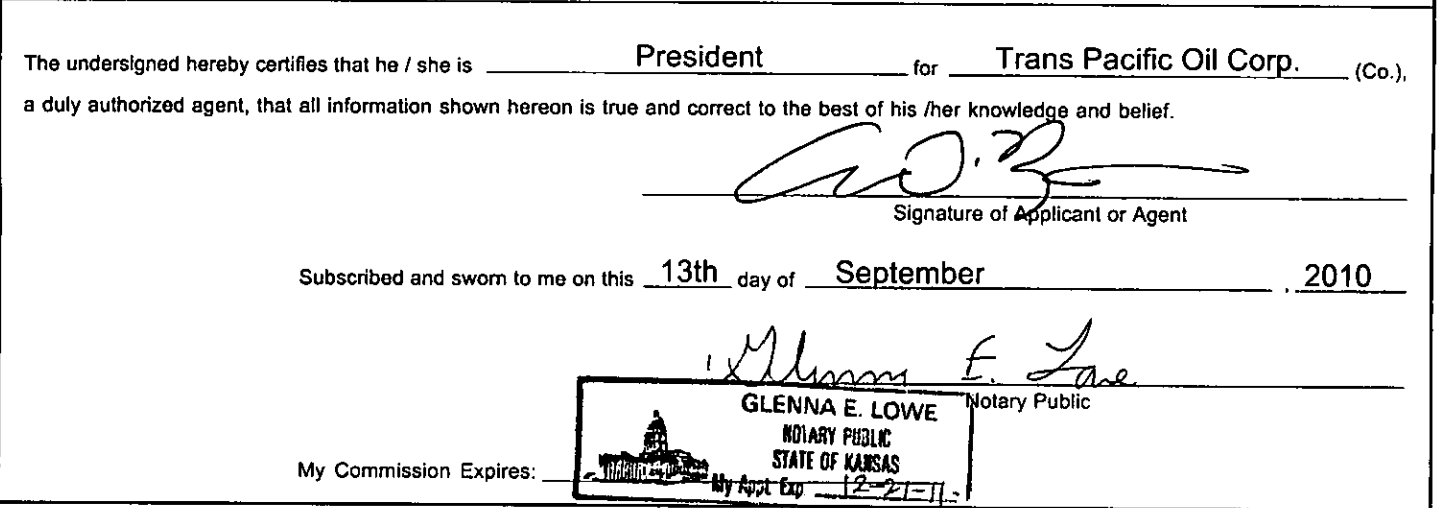 The undersigned hereby certifies that he / she is President for Trans Pacific Oil Corp. (Co.),
a duly authorized agent, that all information shown hereon is true and correct to the best of his /her knowledge and belief.
Signature of Applicant or Agent
Subscribed and sworn to me on this 13th day of September , 2010
Glenna E. Lowe
Notary Public
GLENNA E. LOWE
NOTARY PUBLIC
STATE OF KANSAS
My Appt Exp 12-21-11
My Commission Expires: